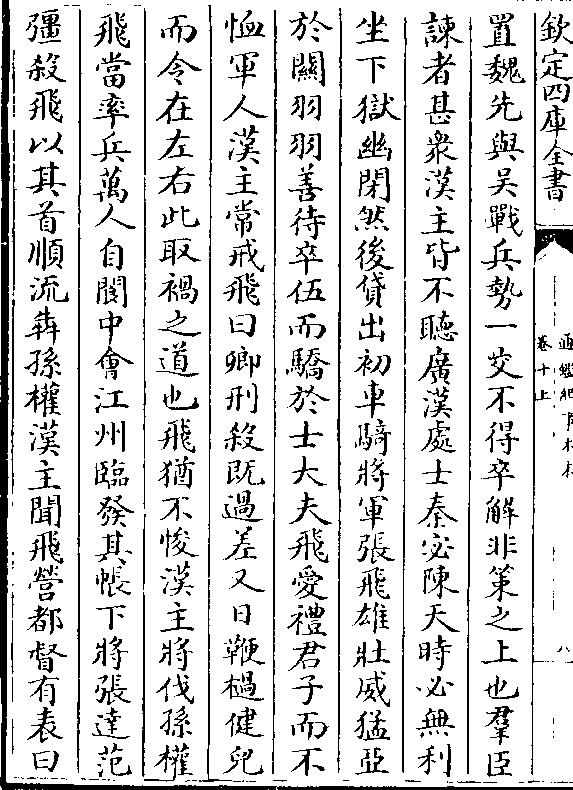 欽定四庫全書
通鑑紀事本末
卷十上
八
置魏先與吳戰兵勢一交不得卒解非策之上也羣臣
諫者甚衆漢主皆不聽廣漢處士秦宓陳天時必無利
坐下獄幽閉然後貸出初車騎將軍張飛雄壯威猛亞
於關羽羽善待卒伍而驕於士大夫飛愛禮君子而不
恤軍人漢主常戒飛曰卿刑殺既過差又日鞭檛健兒
而令在左右此取禍之道也飛猶不悛漢主將伐孫權
飛當率兵萬人自閬中會江州臨發其帳下將張達范
彊殺飛以其首順流犇孫權漢主聞飛營都督有表曰